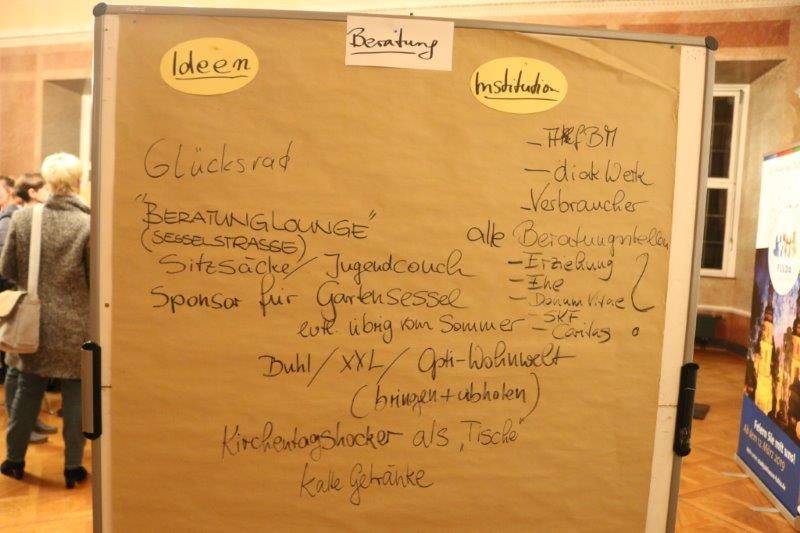 Beratung
Ideen
Institution
Glücksrad
"BERATUNGLOUNGE"
(SESSELSTRASSE)
Sitzsäcke / Jugendcouch
Sponsor für Gartensessel
evtl. übrig vom Sommer
Buhl / XXL / Opti-Wohnwelt
(bringen + abholen)
Kirchentagshocker als „Tische"
Kalte Getränke
- AKfBM
- diak Werke
- Verbraucher
alle Beratungsstellen
- Erziehung
- Ehe
- Donum Vitae
- SKF
- Caritas
?
FULDA
Feiern Sie mit uns!
Ab dem 12. März 2019